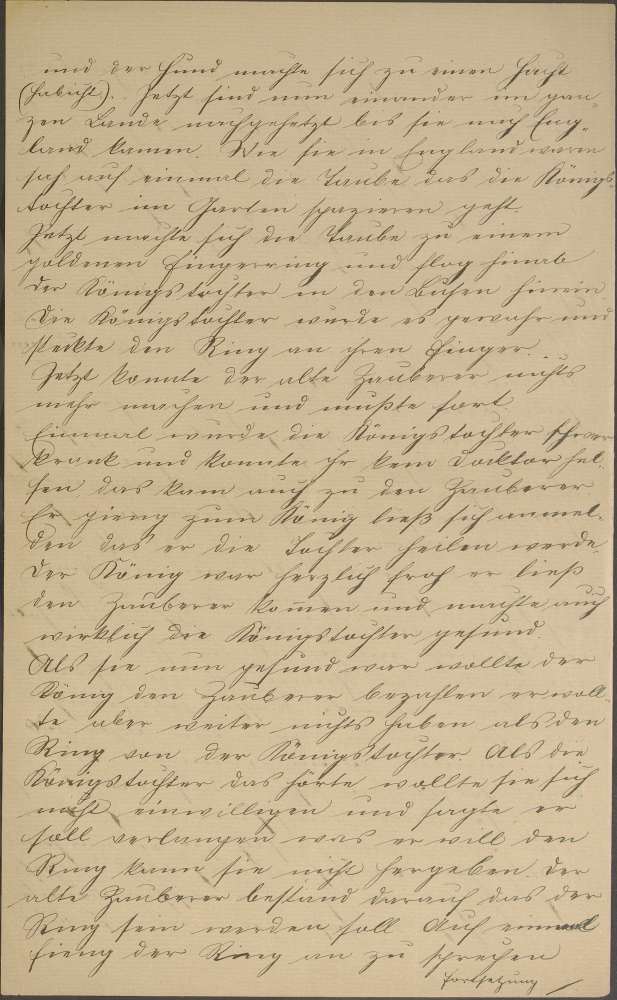 und der Hund machte sich zu einen Hacht
(Habicht). Jetzt sind nun einander im gan-
zen Lande nachgehetzt bis sie nach Eng-
land kamen. Wie sie in England waren
sah auf einmal die Taube das die Königs-
tochter im Garten spazieren geht.
Jetzt machte sich die Taube zu einem
goldenen Fingerring und flog hinab
der Königstochter in den Busen hinein.
Die Königstochter wurde es gewahr und
steckte den Ring an ihren Finger.
Jetzt konnte der alte Zauberer nichts
mehr machen und mußte fort
Einmal wurde die Königstochter schwer
krank und konnte ihr kein Docktor hel-
fen das kam auch zu den Zauberer
Er gieng zum König ließ sich anmel-
den das er die Tochter heilen werde.
Der König war herzlich froh er ließ
den Zauberer kommen und machte auch
wirklich die Königstochter gesund.
Als sie nun gesund war wollte der
König den Zauberer bezahlen er woll-
te aber weiter nichts haben als den
Ring von der Königstochter. Als die
Königstochter das hörte wollte sie sich
nicht einwilligen und sagte er
soll verlangen was er will den
Ring kann sie nicht hergeben. Der
alte Zauberer bestand darauf das der
Ring sein werden soll Auf einmal
fieng der Ring an zu sprechen
Fortsetzung /.